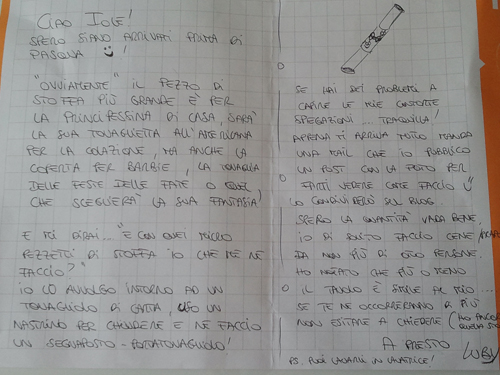 CIAO IOLE!
SPERO SIANO ARRIVATI PRIMA DI
PASQUA !
"OVVIAMENTE" IL PEZZO DI
STOFFA PIÙ GRANDE È PER
LA PRINCIPESSINA DI CASA, SARÀ
LA SUA TOVAGLIETTA ALL'AMERICANA
PER LA COLAZIONE, MA ANCHE LA
COPERTA PER BARBIE, LA TOVAGLIA
DELLE FESTE DELLE FATE O
CHE SCEGLIERÀ LA SUA FANTASIA!
E MI DIRAI... "E CON QUEI MICRO
PEZZETTI DI STOFFA IO CHE ME NE
FACCIO?"
IO LO AVVOLGO INTORNO AD UN
TOVAGLIOLO DI CARTA, USO UN
NASTRINO PER CHIUDERE E NE FACCIO
UN SEGNAPOSTO-PORTATOVAGLIOLO!
SE HAI DEI PROBLEMI A
CAPIRE LE MIE CONTORTE
SPIEGAZIONI... TRANQUILLA!
APPENA TI ARRIVA TUTTO MANDA
UNA MAIL CHE IO PUBBLICO
UN POST CON LA FOTO PER
FARTI VEDERE COME FACCIO
LO CONDIVI PERÒ SUL BLOG.
SPERO LA QUANTITÀ VADA BENE,
IO DI SOLITO FACCIO CENE
DA NON PIÙ DI OTTO PERSONE.
HO NOTATO CHE PIÙ O MENO
IL TAVOLO È SIMILE AL MIO...
SE TE NE OCCORRERANNO DI PIÙ
NON ESITARE A CHIEDERE (HO ANCORA
A PRESTO
LUBY
PS. PUOI LAVARLI IN LAVATRICE!